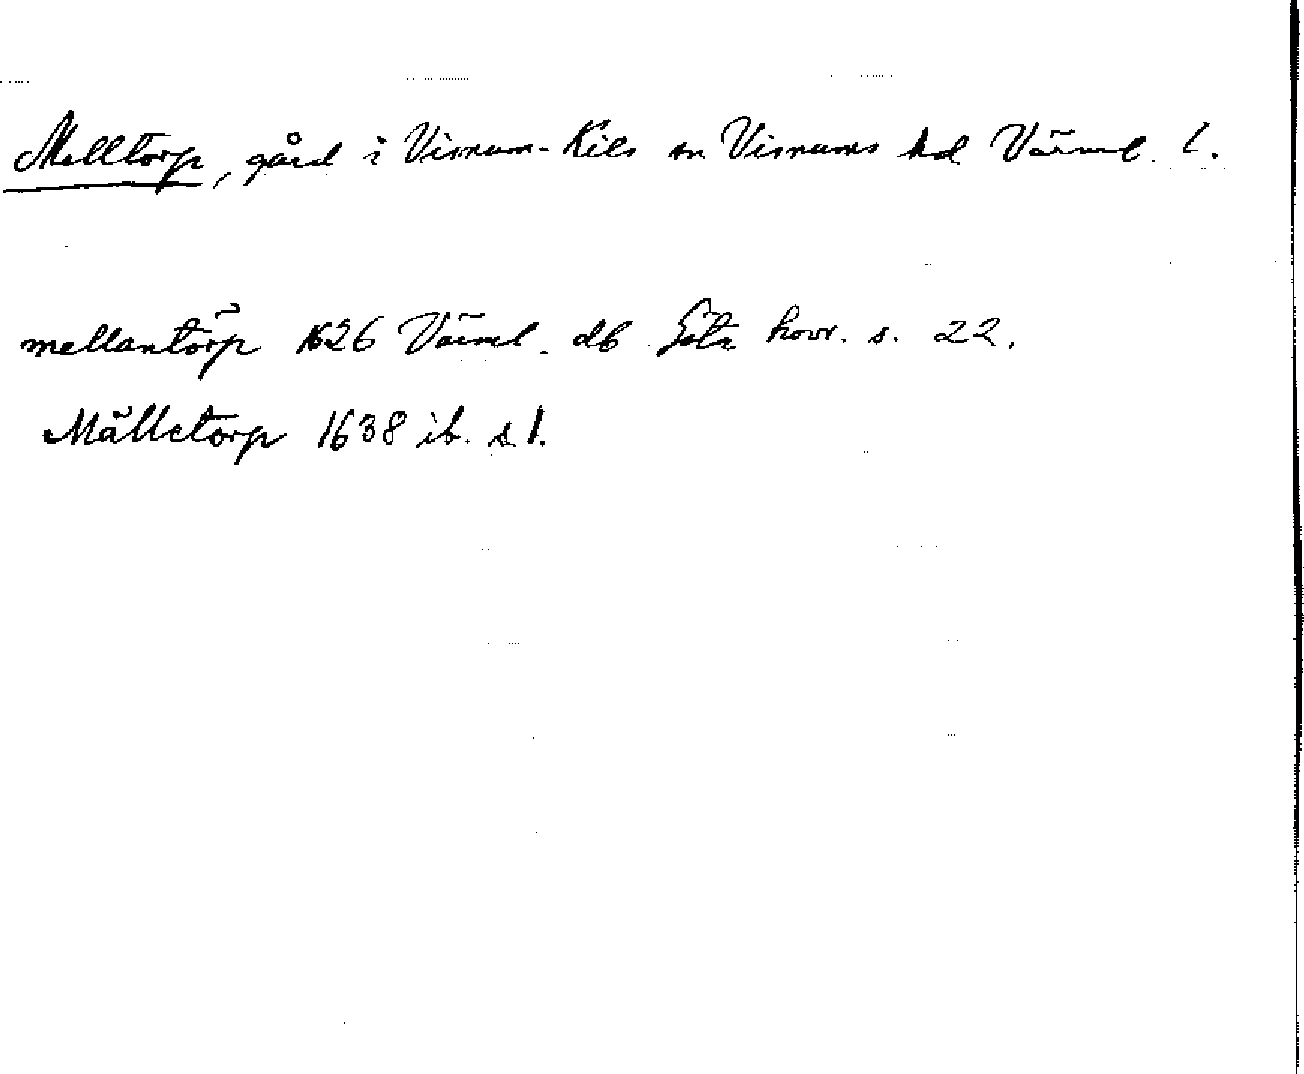 Melltorp, gård i Visnum-Kils sn Visnums hd Värml. l.
mellantörp 1626 Värml. db Göta hovr. s. 22.
Mälletorp 1638 ib. s 1.